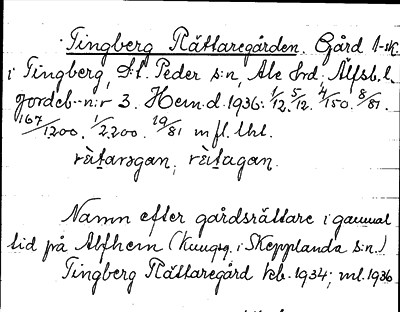 Tingberg Rättaregården. Gård 1 mtl.
i Tingberg, S:t. Peder s:n, Ale hd. Älfsb. l.
Jordeb. n:r 3. Hem.d. 1936: 1/12. 5/12. 4/150. 8/81.
167/1200. 1/2200. 19/81 m fl. tht.
Namn efter gårdsrättare i gammal
tid på Alfhem (Kungsg. i Skepplanda s:n.)
Tingberg Rättaregård kb. 1934; ml. 1936